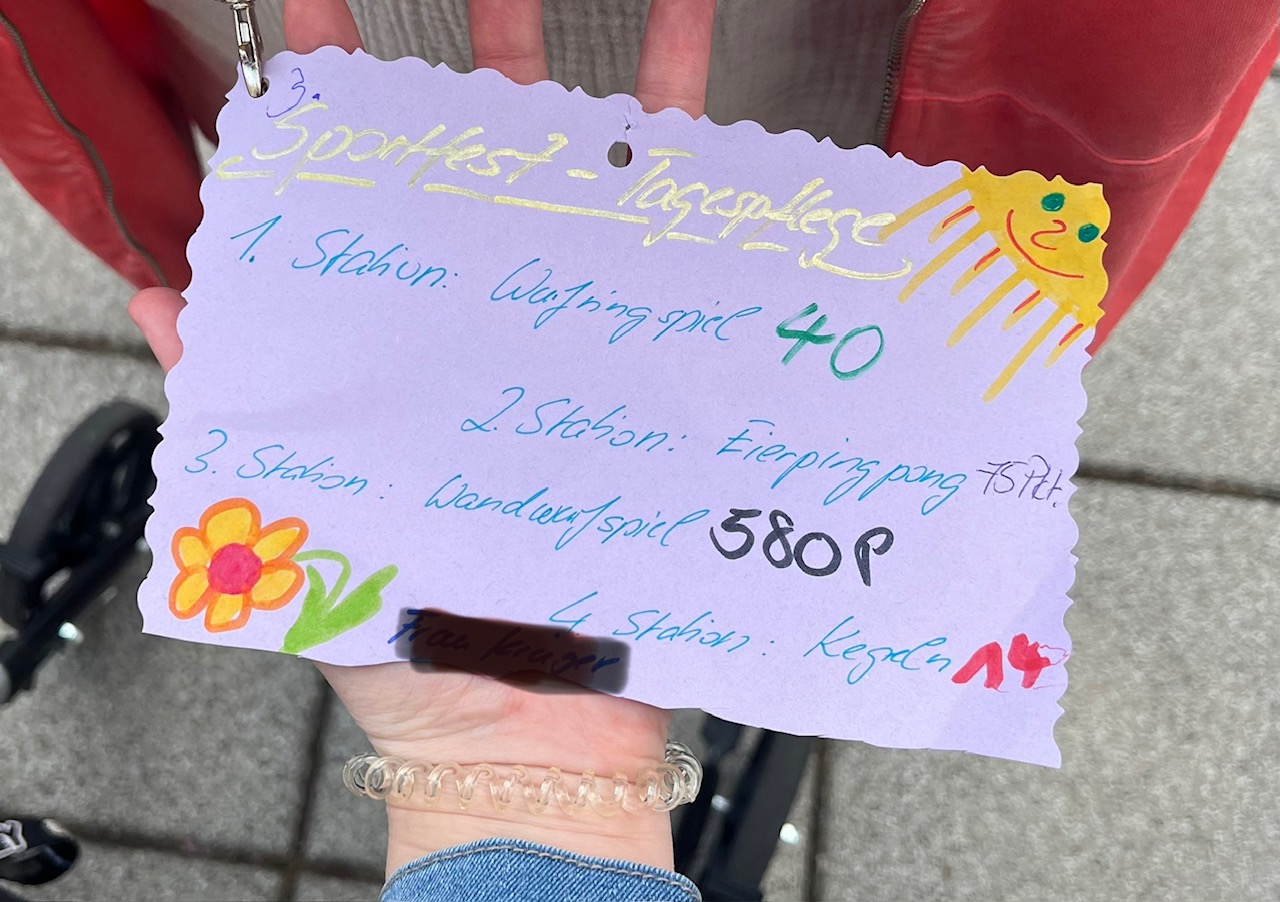 3.
Sportfest - Tagespflege
1. Station: Wurfringspiel 40
2. Station: Eierpingpong 75 Pkt.
3. Station: Wandwurfspiel 580P
4 Station: Kegeln 14